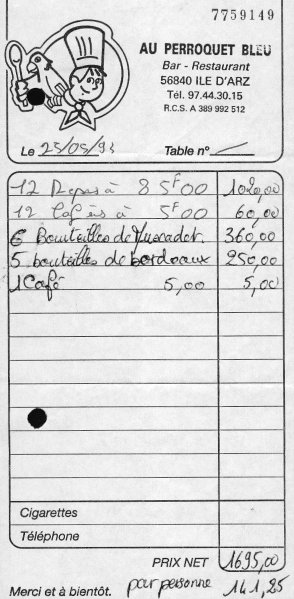 7759149
AU PERROQUET BLEU
Bar - Restaurant
56840 ILE D'ARZ
Tél. 97.44.30.15
R.C.S. A 389 992 512
Le 25/05/93 Table n°
12 Repas à 85F00 1020,00
12 Cafés à 5F00 60,00
6 Bouteilles de Muscadet. 360,00
5 bouteilles de bordeaux 250,00
1 Café 5,00 5,00
Cigarettes
Téléphone
PRIX NET 1695,00
Merci et à bientôt. par personne 141,25